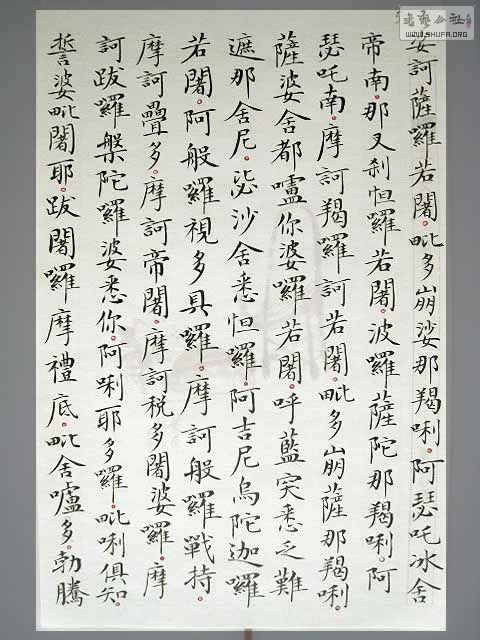 訶薩囉若闍。毗多崩娑那羯唎。阿瑟吒冰舍
帝南。那叉剎怛囉若闍。波囉薩陀那羯唎。阿
瑟吒南。摩訶羯囉訶若闍。毗多崩薩那羯唎。
薩婆舍都嚧你婆囉若闍。呼藍突悉乏難
遮那舍尼。毖沙舍悉怛囉。阿吉尼烏陀迦囉
若闍。阿般囉視多具囉。摩訶般囉戰持。
摩訶疊多。摩訶帝闍。摩訶稅多闍婆囉。摩
訶跋囉槃陀囉婆悉你。阿唎耶多囉。毗唎俱知。
誓婆毗闍耶。跋闍囉摩禮底。毗舍嚧多。勃騰
WWW.SHUFA.ORG